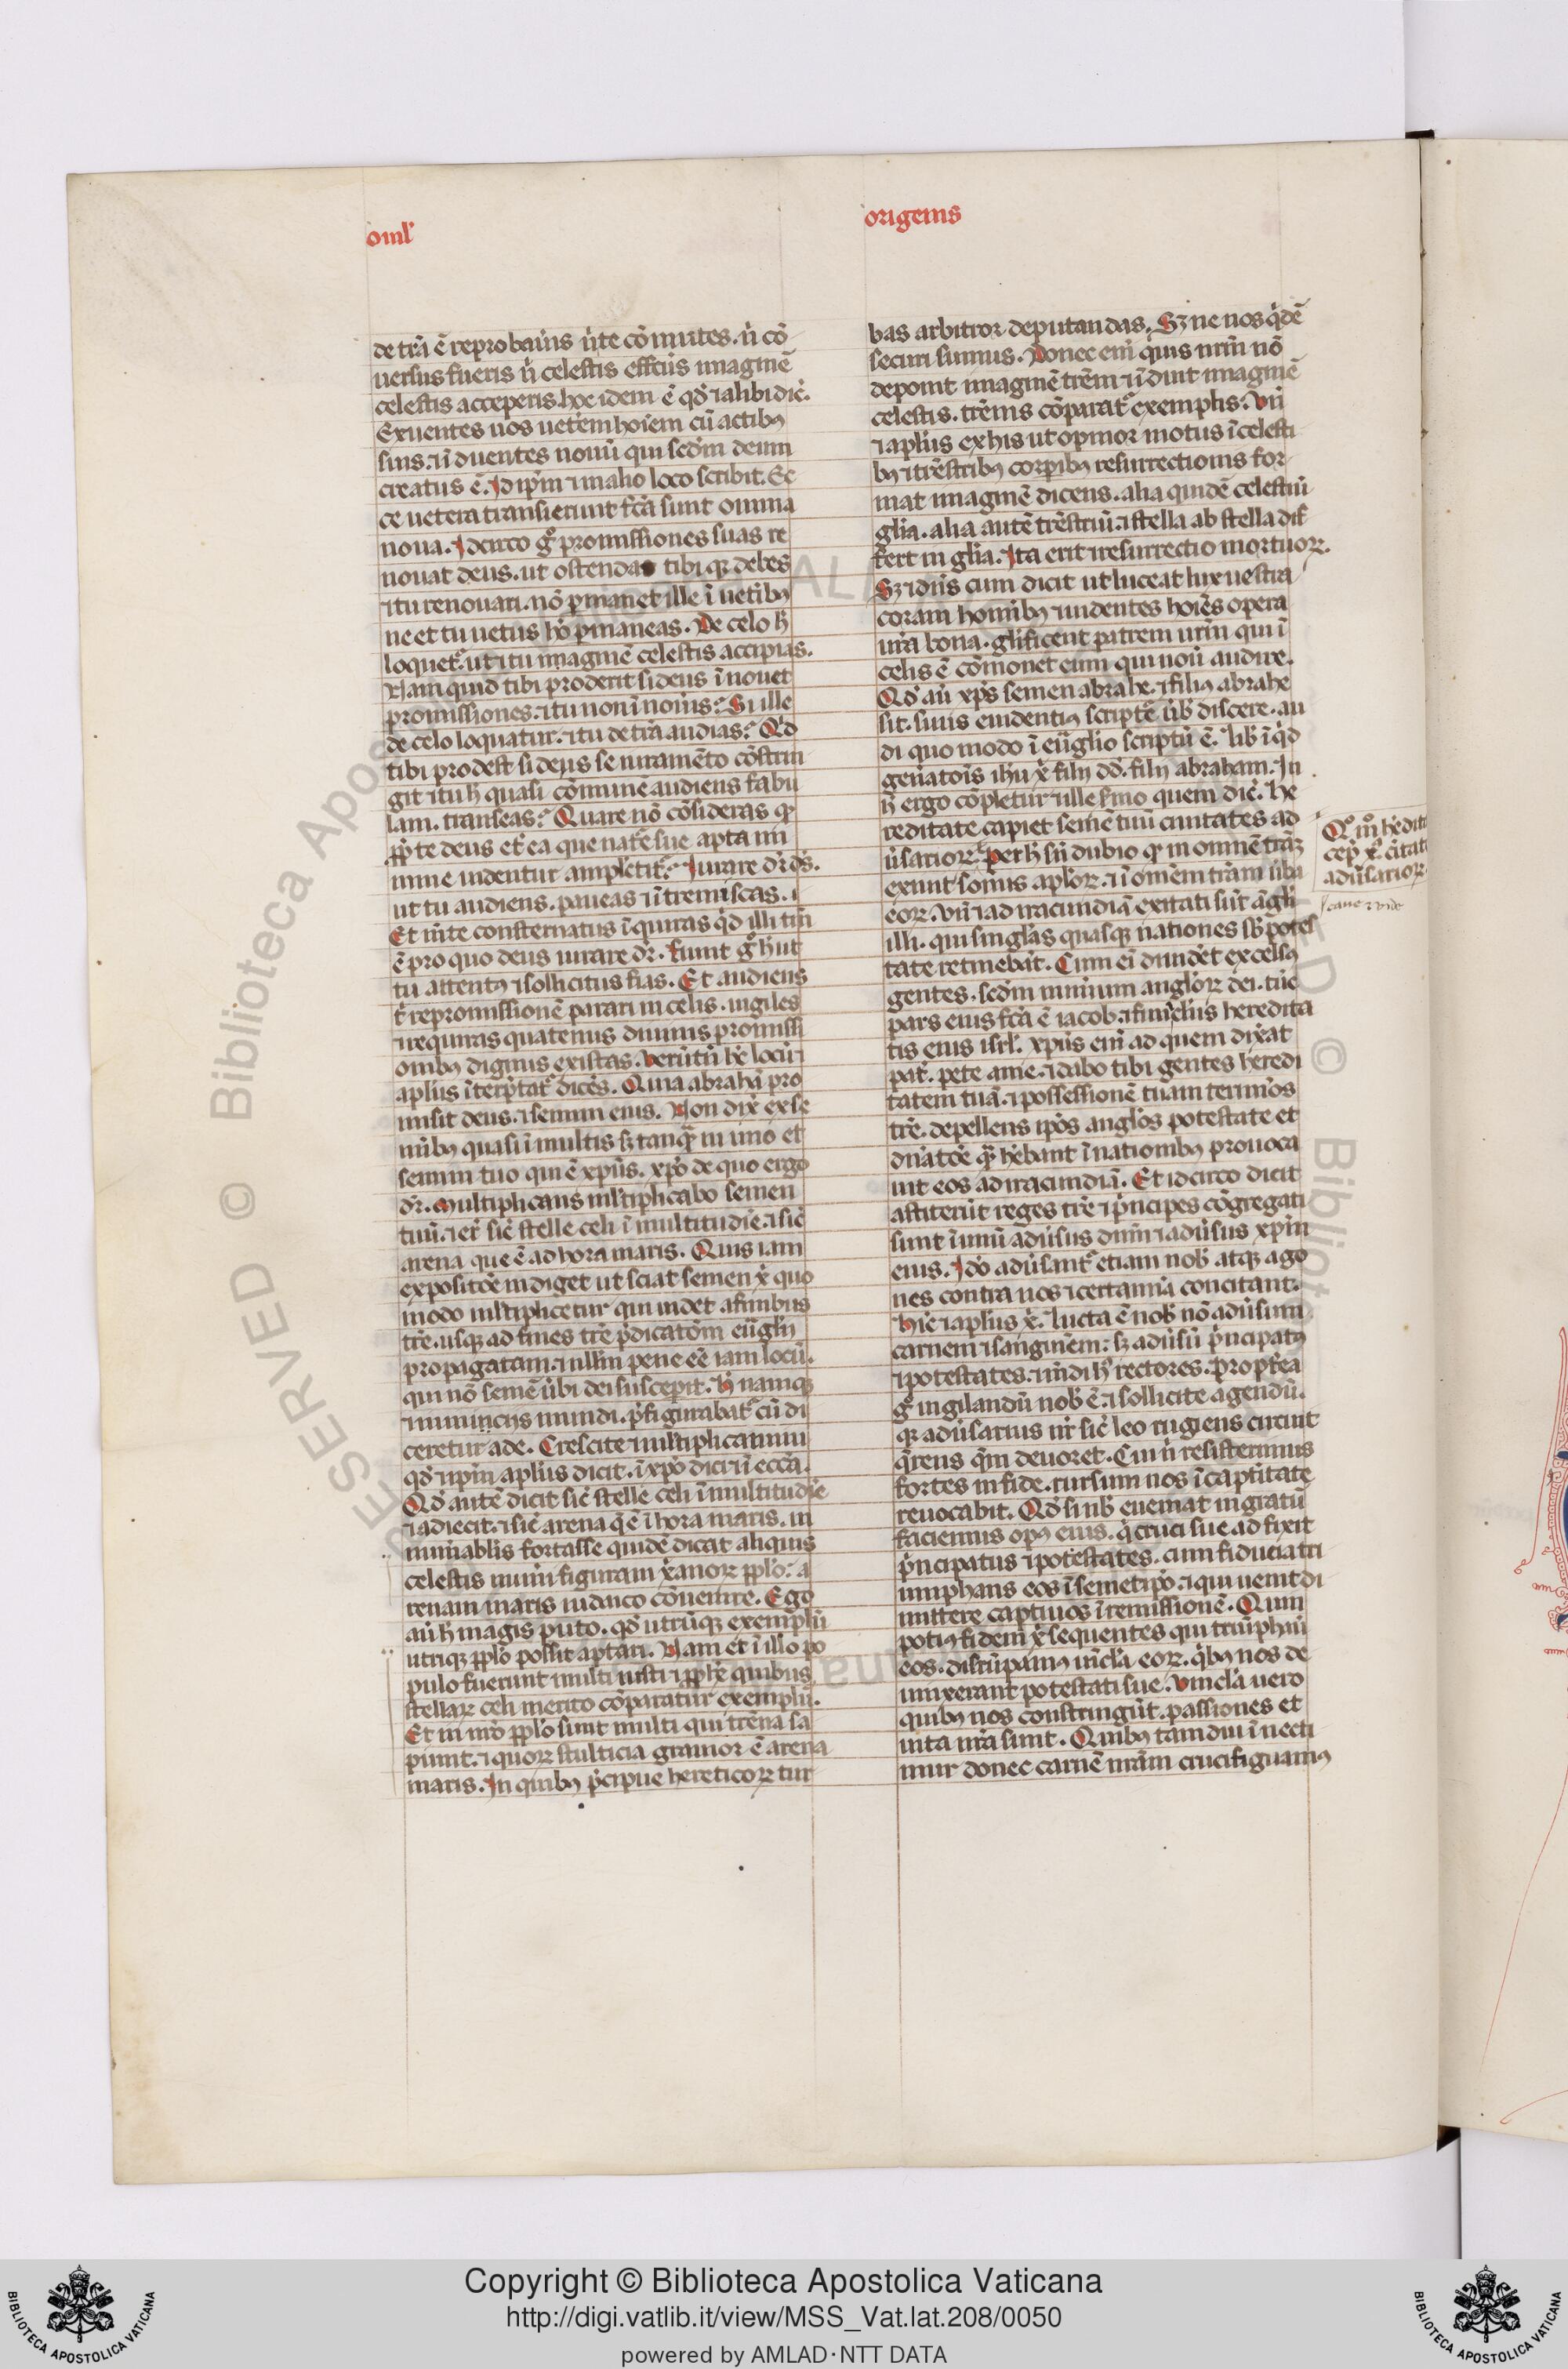 oml'
origenis
de tr̄a ē reprobauūs n̄ te cōmutes. n̄ cō
uersus fueris n̄ celestis effcūs imaginē
celestis acceperis. hoc idem ē qd̄ ⁊ alibi dic̄.
Exuentes uos ueteēm hoīem cū actibꝰ
suis. ⁊ īduentes nouū qui scd̄m deum
creatus ē. Id ip̄m ⁊ in alio loco scribit. Ec
ce uetera transierunt fc̄a sunt omnia
noua. Idcirco gͦ promissiones suas re
nouat deus. ut ostendat tibi qꝫ debes
⁊ tu renouari. nō ꝑmanet ille ī uetibꝰ
ne et tu uetus hō ꝑmaneas. De celo h̄
loquet᷑. ut ⁊ tu imaginē celestis accipias.
Nam quid tibi proderit si deus īnouet
promissiones. ⁊ tu non īnoūis? Si ille
de celo loquatur. ⁊ tu de tr̄a audias? Qd̄
tibi prodest si deus se iuramēto cōstrin
git ⁊ tu h̄ quasi cōmunē audiens fabu
lam. transeas? Quare nō cōsideras qꝫ
ꝓp̄ te deus et̄ ea que nat̄e sue apta mi
nime uidentur amplētit᷑? Iurare dr̄ ds̄.
ut tu audiens. paueas ⁊ ītremiscas.
Et īn̄te consternatus īquiras qd̄ illi tm̄
ē pro quo deus iurare dr̄. Fiunt gͦ h̄ ut
tu attentꝰ ⁊ sollicitus fias. Et audiens
t̄ repromissionē parari in celis. uigiles
⁊ requiras quatenus diuinis promissi
onibꝰ dignus existas. Verūtn̄ hc̄ locū
apl̄us īterp̄tat᷑ dicēs. Quia abrahā pro
misit deus. ⁊ semini eius. Non dix̄ ex se
minibꝰ quasi ī multis sꝫ tanqꝫ in uno et
semini tuo qui ē xp̄us. xp̄o de quo ergo
dr̄. Multiplicans ml̄tiplicabo semen
tuū. ⁊ er̄ sic̄ stelle celi ī multitudīe. ⁊ sic̄
arena que ē ad hora maris. Quis iam
expositōe indiget ut sciat semen x̄ quo
modo ml̄tiplicetur qui uidet a finibus
tr̄e. usqꝫ ad fines tr̄e p̄dicatōm eūglij
propagatam. ⁊ nllm̄ pene eē iam locū.
qui nō semē ūbi dei susceperit. h̄ namqꝫ
⁊ in iniciis mundi. p̄figurabat᷑ cū di
ceretur ade. Crescite ⁊ ml̄tiplicamini
qd̄ ⁊ ip̄m apl̄us dicit. ī xp̄o dici ⁊ ī ecc̄a.
Qd̄ autē dicit sic̄ stelle celi ī multitudīe
⁊ adiecit. ⁊ sic̄ arena q̄ ē ī hora maris. in
num̄ablis fortasse quidē dicat aliquis
celestis num̄i figuram x̄anoꝝ ppl̄o. a
renam maris iudaico cōuenire. Ego
aūt h̄ magis puto. qd̄ utrūqꝫ exemplū
utriqꝫ ppl̄o possit aptari. Nam et ī illo po
pulo fuerunt multi iusti ⁊ pph̄e quibus
stellaꝝ celi merito cōparatur exemplū.
Et in nr̄o ppl̄o sunt multi qui trēna sa
piunt. ⁊ quoꝝ stulticia grauior ē arena
maris. In quibꝰ p̄cipue hereticoꝝ tur
bas arbitror deputandas. Sꝫ ne nos q̄dē
securi sumus. Donec em̄ quis nr̄m nō
deponit imaginē trēm ⁊ īduit imaginē
celestis. trēnis cōparat᷑ exemplis. Vn̄
⁊ apl̄us ex his ut opinor motus ī celesti
bꝰ ⁊ trēstribꝰ corꝑibꝰ resurrectionis for
mat imaginē dicens. alia quidē celestiū
gl̄ia. alia autē trēstriū. ⁊ stella ab stella dif
fert in gl̄ia. Ita erit ⁊ resurrectio mortuoꝝ.
Sꝫ ⁊ dn̄s cum dicit ut luceat lux uestra
coram hominibꝰ ut uidentes hoīes opera
ur̄a bona. glīficent patrem urm̄ qui ī
celis ē cōmonet eum qui nou̇it audire.
Qd̄ aūt xp̄s semen abrahe. ⁊ filiꝰ abrahe
sit. si uis euidentiꝰ scripte ūb̄ discere. au
di quo modo ī eūglio scriptū ē. lib̄ īqd
gen̄atōis ihū x̄ filij dd̄. filij abraham. In
h̄ ergo cōpletur ⁊ ille sm̄o quem dic̄. he
reditate capiet semē tuū ciuitates ad
ūsarioꝝ. Per h̄ sn̄ dubio qꝫ in omnē trāꝫ
exiunt sonus apl̄oꝝ. ⁊ ī omem trām ūba
eoꝝ. Vn̄ ⁊ ad iracundiā exitati sūt āgli
illi. qui singl̄as quasqꝫ nationes sb̄ potes
tate retinebāt. Cum em̄ diuidēt excelsꝰ
gentes. scd̄m num̄um angl̄oꝝ dei. tūc
pars eius fc̄a ē iacob. ⁊ funic̄lus heredita
tis eius isrl̄. xp̄us em̄ ad quem dix̄at
pat̄. pete a me. ⁊ dabo tibi gentes heredi
tatem tuā. ⁊ possessionē tuam terminos
tr̄e. depellens ip̄os angl̄os potestate et
dn̄atōe quā hēbant ī nationibꝰ prouoca
uit eos ad iracundiā. Et idcirco dicit
astiterūt reges tr̄e ⁊ p̄ncipes cōgregati
sunt ī unū adūsus dn̄m ⁊ adūsus xp̄m
eius. Ido adūsant᷑ etiam nob̄ atqꝫ ago
nes contra nos ⁊ certamīa concitant.
Hic̄ ⁊ apl̄us x̄. lucta ē nob̄ nō adūsum
carnem ⁊ sanguinem: sꝫ adūsū p̄ncipatꝰ
⁊ potestates. ⁊ mūdi hꝰ rectores. Propt̄ea
gͦ uigilandū nob̄ ē. ⁊ sollicite agendū.
qꝫ adūsarius nr̄ sic̄ leo rugiens circuit
q̄rens quem deuoret. Cui n̄ resisterimus
fortes in fide. rursum nos ī captiuitatē
reuocabit. Qd̄ si nob̄ eueniat ingratū
faciemus opꝰ eius. q̄ cruci sue adfixit
p̄ncipatus ⁊ potestates. cum fiducia tri
umphans eos ī semetipo. ⁊ qui uenit di
mittere captiuos ī remissionē. Quin
potiꝰ fidem x̄ sequentes qui triūphauit
eos. disrūpamꝰ uīcla eoꝝ. qͥbꝰ nos de
uinxerant potestati sue. Vincla uero
quibꝰ nos constringūt. passiones et
uita nr̄a sunt. Quibꝰ tam diu īnecti
mur donec carnē nr̄am crucifiguamꝰ
Qͦmͦ h̄edita
cep̄ x̄ citat
adūsarioꝝ
caue ⁊ vide
RESERVED © Biblioteca Apostolica Vaticana
Copyright © Biblioteca Apostolica Vaticana
http://digi.vatlib.it/view/MSS_Vat.lat.208/0050
powered by AMLAD·NTT DATA
BIBLIOTECA APOSTOLICA VATICANA
BIBLIOTECA APOSTOLICA VATICANA